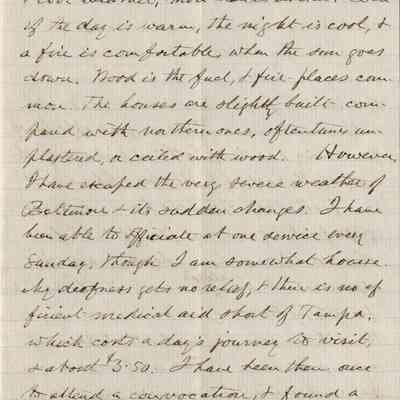 of the day is warm, the night is cool, &
a fire is comfortable, when the sun goes
down. Wood is the fuel, & fire places com-
mon. The houses are slightly built com-
pared with northern ones, oftentimes un-
plastered, or ceiled with wood. However
I have escaped the very severe weather of
Baltimore & its sudden changes. I have
been able to officiate at one service every
Sunday, though I am somewhat hoarse.
My deafness gets no relief, & there is no ef
ficient medical aid short of Tampa,
which costs a day's journey to visit,
& about $3.50. I have been there once
to attend a convocation, & found a